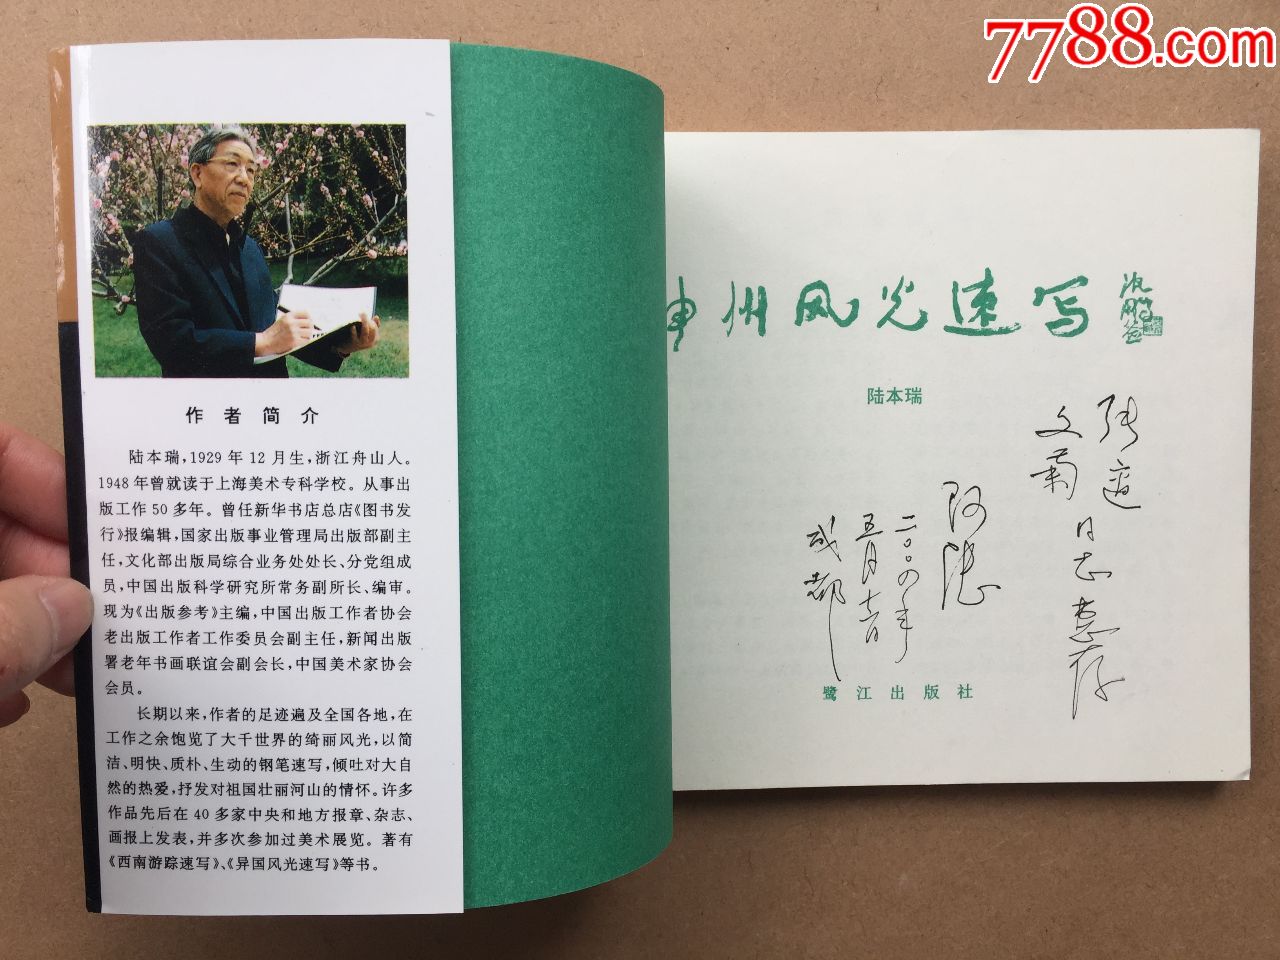 7788.com
作者简介
陆本瑞,1929年12月生,浙江舟山人。
1948年曾就读于上海美术专科学校。从事出
版工作50多年。曾任新华书店总店《图书发
行》报编辑,国家出版事业管理局出版部副主
任,文化部出版局综合业务处处长、分党组成
员,中国出版科学研究所常务副所长、编审。
现为《出版参考》主编,中国出版工作者协会
老出版工作者工作委员会副主任,新闻出版
署老年书画联谊会副会长,中国美术家协会
会员。
长期以来,作者的足迹遍及全国各地,在
工作之余饱览了大千世界的绮丽风光,以简
洁、明快、质朴、生动的钢笔速写,倾吐对大自
然的热爱,抒发对祖国壮丽河山的情怀。许多
作品先后在40多家中央和地方报章、杂志、
画报上发表,并多次参加过美术展览。著有
《西南游踪速写》、《异国风光速写》等书。
神州风光速写
沈鹏
陆本瑞
张
文菊
同志惠存
阿陆
二〇〇四年
五月
成都
鹭江出版社